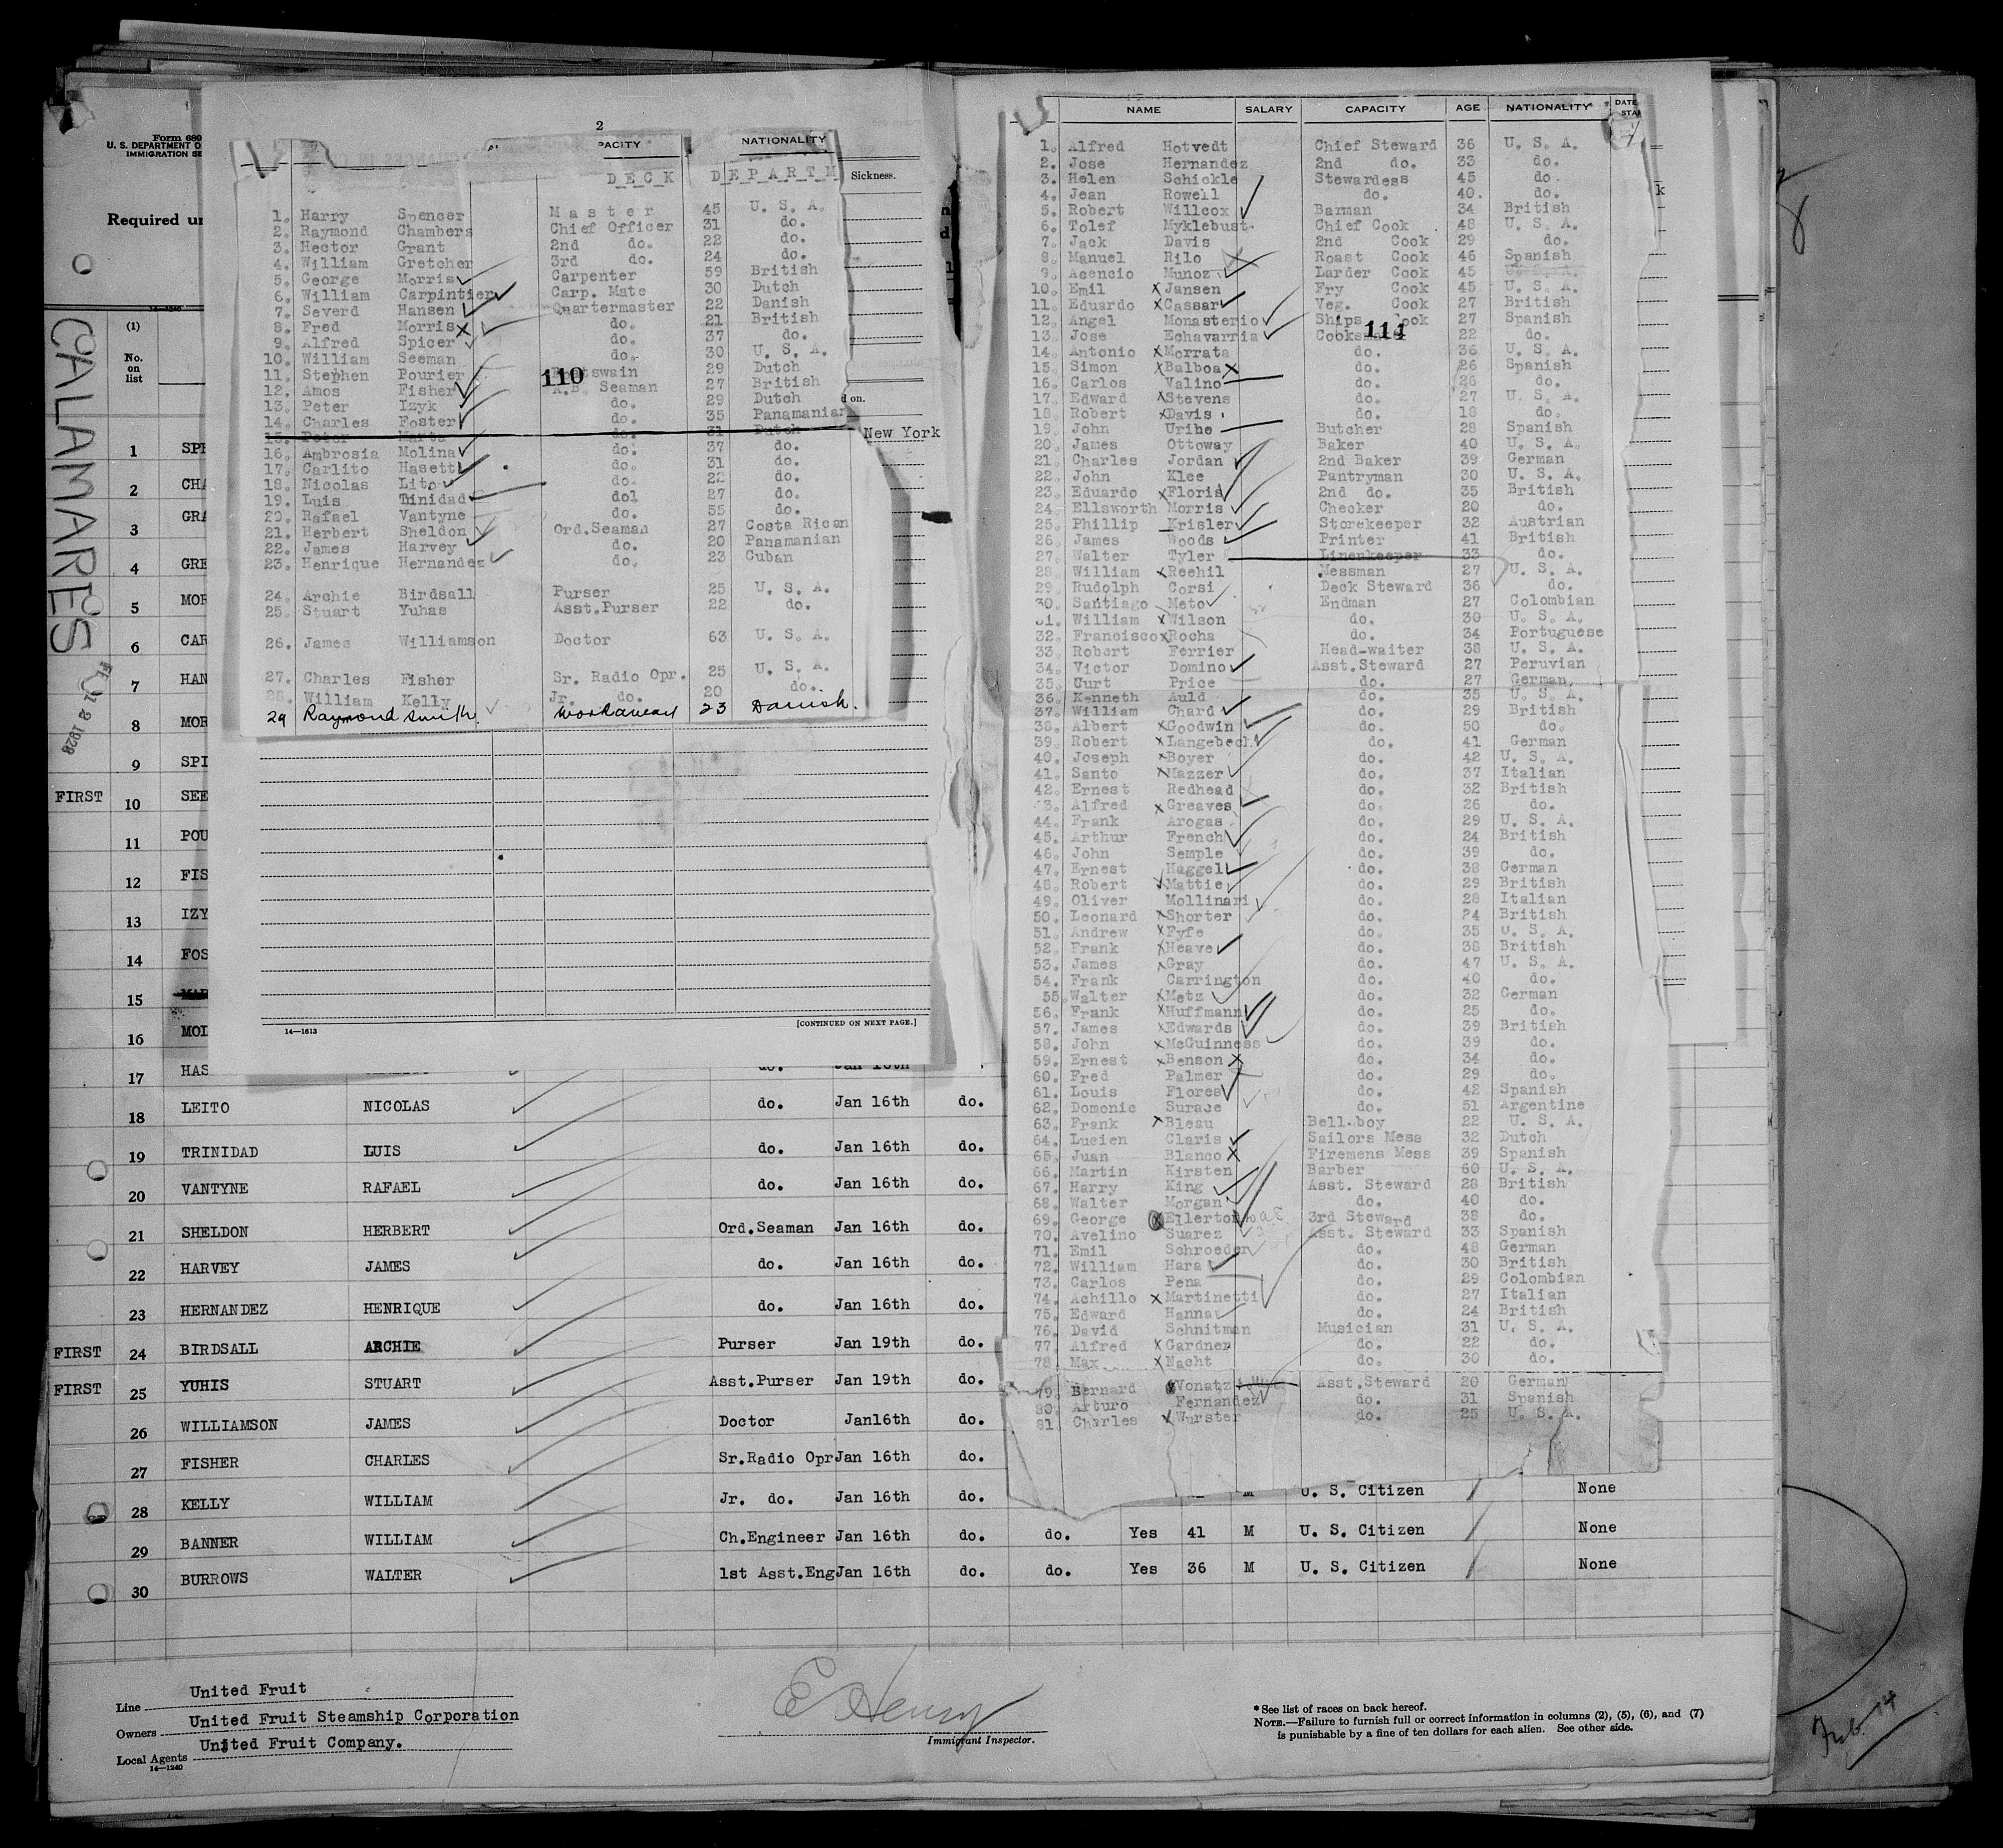 Form 680
U. S. DEPARTMENT O
IMMIGRATION SE
Required un
CALAMARES
FE 12 1928
(1)
No.
on
list
1 SPE
2 CHA
3 GRA
4 GRE
5 MOR
6 CAR
7 HAN
8 MOR
9 SPI
FIRST 10 SEE
11 POU
12 FIS
13 IZY
14 FOS
15 MAR
16 MOL
2
PACITY NATIONALITY
DECK DEPARTM
Sickness.
1. Harry Spencer Master 45 U. S. A.
2. Raymond Chambers Chief Officer 31 do.
3. Hector Grant 2nd do. 22 do.
4. William Gretcher 3rd do. 24 do.
5. George Morris Carpenter 59 British
6. William Carpintier Carp. Mate 30 Dutch
7. Severd Hansen Quartermaster 22 Danish
8. Fred Morris do. 21 British
9. Alfred Spicer do. 37 do.
10. William Seeman do. 30 U. S. A.
11. Stephen Pourier swain 29 Dutch
110
12. Amos Fisher A.B. Seaman 27 British
13. Peter Izyk do. 29 Dutch
d on.
14. Charles Foster do. 35 Panamanian
15. Peter do. 31 Dutch
New York
16. Ambrosia Molina do. 37 do.
17. Carlito Hasett do. 31 do.
18. Nicolas Lito do. 22 do.
19. Luis Trinidad dol 27 do.
20. Rafael Vantyne do. 55 do.
21. Herbert Sheldon Ord.Seaman 27 Costa Rican
22. James Harvey do. 20 Panamanian
23. Henrique Hernandez do. 23 Cuban
24. Archie Birdsall Purser 25 U. S. A.
25. Stuart Yuhas Asst.Purser 22 do.
26. James Williamson Doctor 63 U. S. A.
27. Charles Fisher Sr. Radio Opr. 25 U. S. A.
28. William Kelly Jr. do. 20 do.
29 Raymond Smith Workaway 23 Danish.
14—1613 [CONTINUED ON NEXT PAGE.]
NAME SALARY CAPACITY AGE NATIONALITY DATE
STA
1. Alfred Hotvedt Chief Steward 36 U. S. A.
2. Jose Hernandez 2nd do. 33 do.
3. Helen Schickle Stewardess 45 do.
4. Jean Rowell do. 40. do.
5. Robert Willcox Barman 34 British
6. Tolef Myklebust Chief Cook 48 U. S. A.
7. Jack Davis 2nd Cook 29 do.
8. Manuel Rilo Roast Cook 46 Spanish
9. Acencio Munoz Larder Cook 45 U. S. A.
10. Emil Jansen Fry Cook 45 U. S. A.
11. Eduardo Cassar Veg. Cook 27 British
12. Angel Monasterio Ships Cook 27 Spanish
111
13. Jose Echavarria Cooksmate 22 do.
14. Antonio Morrata do. 36 U. S. A.
15. Simon Balboa do. 26 Spanish
16. Carlos Valino do. 26 do.
17. Edward Stevens do. 27 U. S. A.
18. Robert Davis do. 18 do.
19. John Uribe Butcher 28 Spanish
20. James Ottoway Baker 40 U. S. A.
21. Charles Jordan 2nd Baker 39 German
22. John Klee Pantryman 30 U. S. A.
23. Eduardo Floris 2nd do. 35 British
24. Ellsworth Morris Checker 20 do.
25. Phillip Krisler Storekeeper 32 Austrian
26. James Woods Printer 41 British
27. Walter Tyler Linenkeeper 33 do.
28. William Reehil Messman 27 U. S. A.
29. Rudolph Corsi Deck Steward 36 do.
30. Santiago Meto Endman 27 Colombian
31. William Wilson do. 30 U. S. A.
32. Francisco Rocha do. 34 Portuguese
33. Robert Ferrier Head-waiter 38 U. S. A.
34. Victor Domino Asst.Steward 27 Peruvian
35. Curt Price do. 27 German
36. Kenneth Auld do. 35 U. S. A.
37. William Chard do. 29 British
38. Albert Goodwin do. 50 do.
39. Robert Langebech do. 41 German
40. Joseph Boyer do. 42 U. S. A.
41. Santo Mazzer do. 37 Italian
42. Ernest Redhead do. 32 British
43. Alfred Greaves do. 26 do.
44. Frank Arogas do. 29 U. S. A.
45. Arthur French do. 24 British
46. John Semple do. 39 do.
47. Ernest Haggel do. 38 German
48. Robert Mattie do. 29 British
49. Oliver Mollinari do. 28 Italian
50. Leonard Shorter do. 24 British
51. Andrew Fyfe do. 35 U. S. A.
52. Frank Heave do. 38 British
53. James Gray do. 47 U. S. A.
54. Frank Carrington do. 40 do.
55. Walter Metz do. 32 German
56. Frank Huffmann do. 25 do.
57. James Edwards do. 39 British
58. John McGuinness do. 39 do.
59. Ernest Benson do. 34 do.
60. Fred Palmer do. 29 do.
61. Louis Flores do. 42 Spanish
62. Domonic Surace do. 51 Argentine
63. Frank Bleau Bell.boy 22 U. S. A.
64. Lucien Claris Sailors Mess 32 Dutch
65. Juan Blanco Firemens Mess 39 Spanish
66. Martin Kirsten Barber 60 U. S. A.
67. Harry King Asst. Steward 28 British
68. Walter Morgan do. 40 do.
69. George Ellerton 3rd Steward 38 do.
70. Avelino Suarez Asst. Steward 33 Spanish
71. Emil Schroeder do. 48 German
72. William Hara do. 30 British
73. Carlos Pena do. 29 Colombian
74. Achillo Martinetti do. 27 Italian
75. Edward Hanna do. 24 British
76. David Schnitman Musician 31 U. S. A.
77. Alfred Gardner do. 22 do.
78. Max Nacht do. 30 do.
79. Bernard Vonatz Asst.Steward 20 German
80. Arturo Fernandez do. 31 Spanish
81 Charles Wurster do. 25 U. S. A.
17 HAS do. Jan 16th
18 LEITO NICOLAS do. Jan 16th do.
19 TRINIDAD LUIS do. Jan 16th do.
20 VANTYNE RAFAEL do. Jan 16th do.
21 SHELDON HERBERT Ord.Seaman Jan 16th do.
22 HARVEY JAMES do. Jan 16th do.
23 HERNANDEZ HENRIQUE do. Jan 16th do.
FIRST 24 BIRDSALL ARCHIE Purser Jan 19th do.
FIRST 25 YUHIS STUART Asst.Purser Jan 19th do.
26 WILLIAMSON JAMES Doctor Jan16th do.
27 FISHER CHARLES Sr.Radio Opr Jan 16th do.
28 KELLY WILLIAM Jr. do. Jan 16th do. M U. S. Citizen None
29 BANNER WILLIAM Ch.Engineer Jan 16th do. do. Yes 41 M U. S. Citizen None
30 BURROWS WALTER 1st Asst.Eng Jan 16th do. do. Yes 36 M U. S. Citizen None
Line United Fruit
Owners United Fruit Steamship Corporation
Local Agents United Fruit Company.
14—1240
E Henry
Immigrant Inspector.
* See list of races on back hereof.
NOTE.—Failure to furnish full or correct information in columns (2), (5), (6), and (7)
is punishable by a fine of ten dollars for each alien. See other side.
Feb. 14